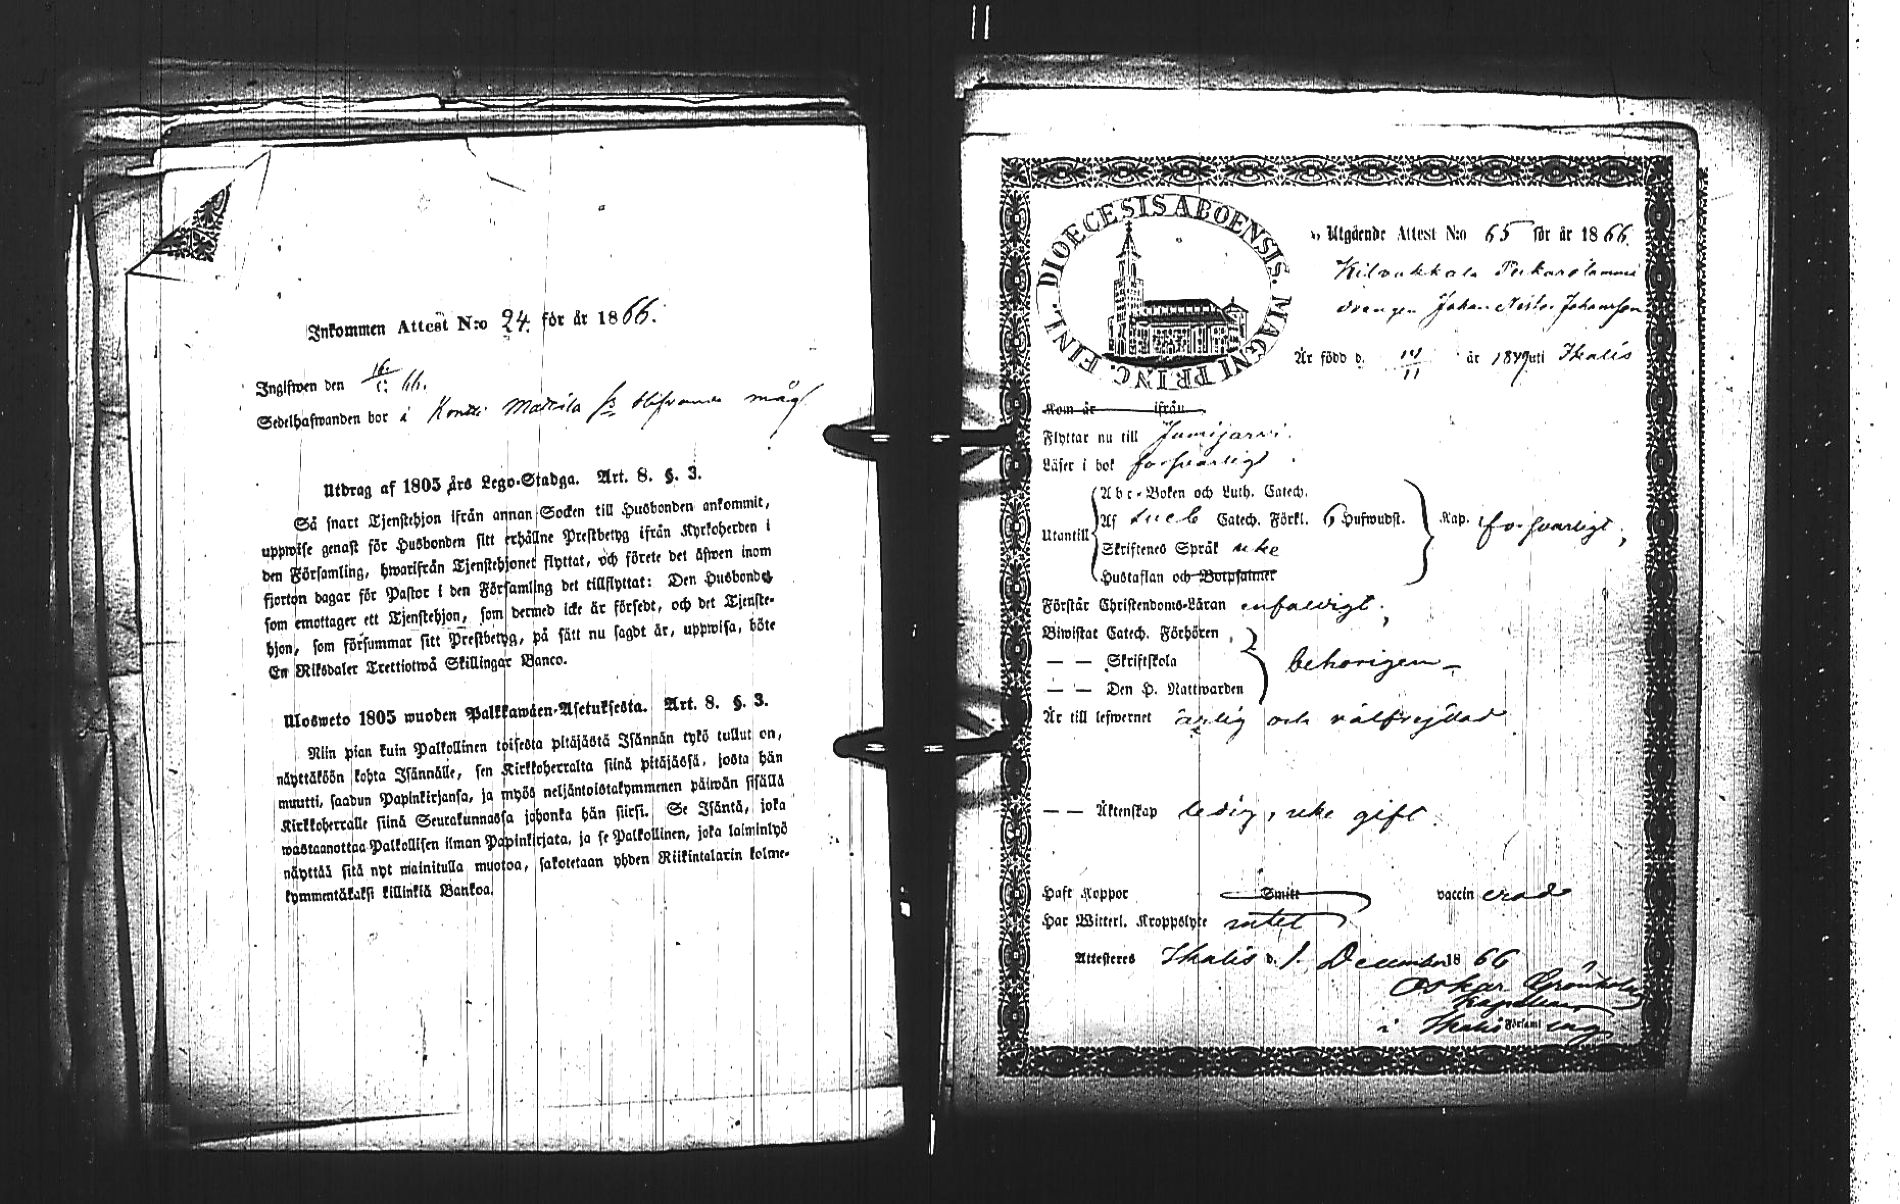 Inkommen Attest N:o 24. för år 1866.
Inglswen den 16/ 66.
Sedelhafwanden bor i Kontti Mattila blifvande måg
Utdrag af 1805 års Lego-Stadga. Art. 8. §. 3.
Så snart Tjenstehjon ifrån annan Socken till Husbonden ankommit,
uppwise genast för Husbonden sitt erhållne Prestbetyg ifrån Kyrkoherden i
den Församling, hwarifrån Tjenstehjonet flyttat, och förete det äfwen inom
fjorton dagar för Pastor i den Församling det tillflyttat: Den Husbonde
som emottager ett Tjenstehjon, som dermed icke är försedt, och det Tjenste-
hjon, som försummar sitt Prestbetyg, på sätt nu sagdt är, uppwisa, böte
En Riksdaler Trettiotwå Skillingar Banco.
Ulosweto 1805 wuoden Palkkawäen-Asetuksesta. Art. 8. §. 3.
Niin pian kuin Palkollinen toisesta pitäjästä Isännän tykö tullut on,
näyttäköön kohta Isännälle, sen Kirkkoherralta siinä pitäjässä, josta hän
muutti, saadun Papinkirjansa, ja myös neljäntoistakymmenen päiwän sisällä
Kirkkoherralle siinä Seurakunnassa johonka hän siirsi. Se Isäntä, joka
wastaanottaa Palkollisen ilman Papinkirjata, ja se Palkollinen, joka laiminlyö
näyttää sitä nyt mainitulla muotoa, sakotetaan yhden Riikintalarin kolme-
kymmentäkaksi killinkiä Bankoa.
DIOECESIS ABOENSIS. MAGNI PRINC. FINL.
Utgående Attest N:o 65 för år 1866.
Kilvakkala
drängen Johan Nestor Johansson
Är född d. 14/11 år 1849 uti Ikalis
Kom år ifrån
Flyttar nu till Jämijärvi.
Läser i bok försvarligt.
Utantill
Abc-Boken och Luth. Catech.
Af Sueb Catech. Förkl. 6 Hufwudst. Kap. försvarligt;
Skriftenes Språk icke
Hustaflan och Botpsalmer
Förstår Christendoms-Läran enfaldigt;
Biwistat Catech. Förhören,
— — Skriftskola behörigen
— — Den H. Nattwarden
Är till lefwernet ärlig och välfrejdad
— — Äktenskap ledig, icke gift.
Haft Koppor Smitt vaccinerad
Har Witterl. Kroppslyte intet
Attesteras Ikalis d. 1. December 1866
Oskar Grönholm
Kapellan
i Ikalis Församling